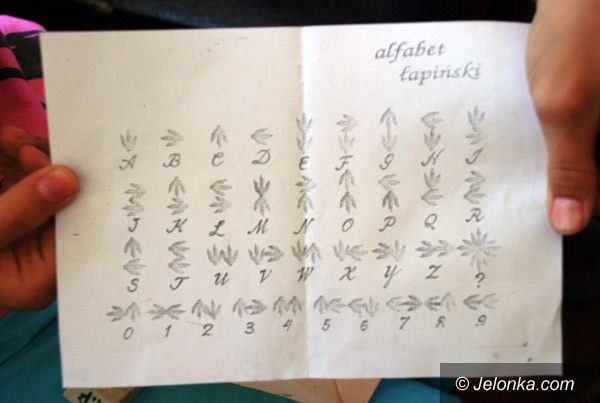 alfabet
łapiński
A B C D E F G H I
J K L M N O P Q R
S T U V W X Y Z ?
0 1 2 3 4 5 6 7 8 9
© Jelonka.com